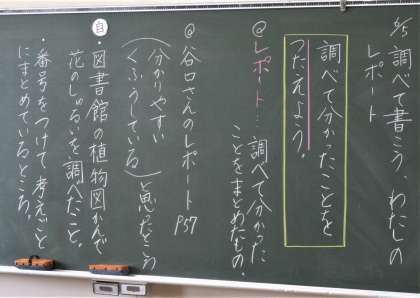 6/5 調べて書こう、わたしの
レポート
調べて分かったことを
つたえよう。
@レポート…調べて分かった
ことをまとめたもの。
@谷口さんのレポート P57
(分かりやすい
くふうしている)と思ったところ
自
・図書館の植物図かんで
花のしゅるいを調べたこと。
・番号をつけて考えごと
にまとめているところ。